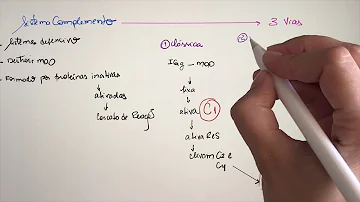 Sistema Complemento → 3 Vias
- Sistemas defensivo
- Destruir mOO
- Formado por proteínas inativas
↓
ativadas
↓
cascata de Reação
① Clássica
IgG - mOO
↓
fixa
↓
ativa C1
↓
ativa C2S
↓
clivam C2 e
C4
②